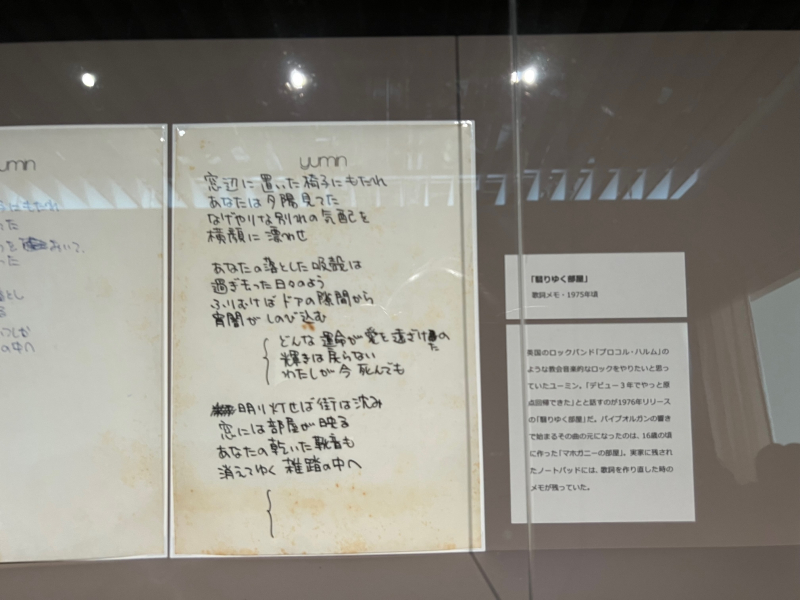 もたれ
おいて、
の中へ
yumin
窓辺に置いた椅子にもたれ
あなたは夕陽見てた
なげやりな別れの気配を
横顔に漂わせ
あなたの落とした吸殻は
過ぎもった日々のよう
ふりむけばドアの隙間から
宵闇がしのび込む
どんな運命が愛を遠ざけ の
た
輝きは戻らない
わたしが今死んでも
明り灯せば街は沈み
窓には部屋が映る
あなたの乾いた靴音も
消えてゆく 雑踏の中へ
「翳りゆく部屋」
歌詞メモ・1975年頃
英国のロックバンド「プロコル・ハルム」の
ような教会音楽的なロックをやりたいと思っ
ていたユーミン。「デビュー3年でやっと原
点回帰できた」とと話すのが1976年リリース
の「翳りゆく部屋」だ。パイプオルガンの響き
で始まるその曲の元になったのは、16歳の頃
に作った「マホガニーの部屋」。実家に残され
たノートパッドには、歌詞を作り直した時の
メモが残っていた。